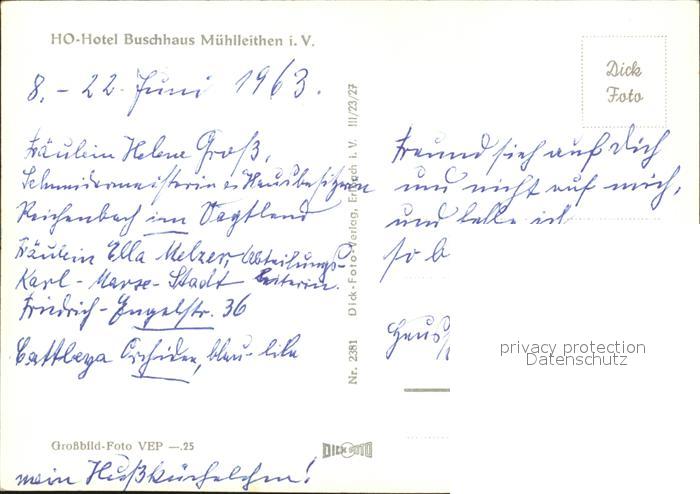 HO-Hotel Buschhaus Mühlleithen i. V.
8. - 22. Juni 1963.
Fräulein Helene Groß,
Schneidermeisterin u. Hausbesitzerin
Reichenbach im Vogtland
Fräulein Ella Melzer, Abteilungs-
leiterin.
Karl-Marx-Stadt
Friedrich-Engelstr. 36
Cattleya Orchidee, blau-lila
Großbild-Foto VEP —.25
mein Nußküchelchen!
Nr. 2381 Dick-Foto-Verlag, Erlbach i. V. III/23/27
DICK FOTO
Dick
Foto
Freund sieh auf Dich
und nicht auf mich,
und ich
so
Haus
privacy protection
Datenschutz